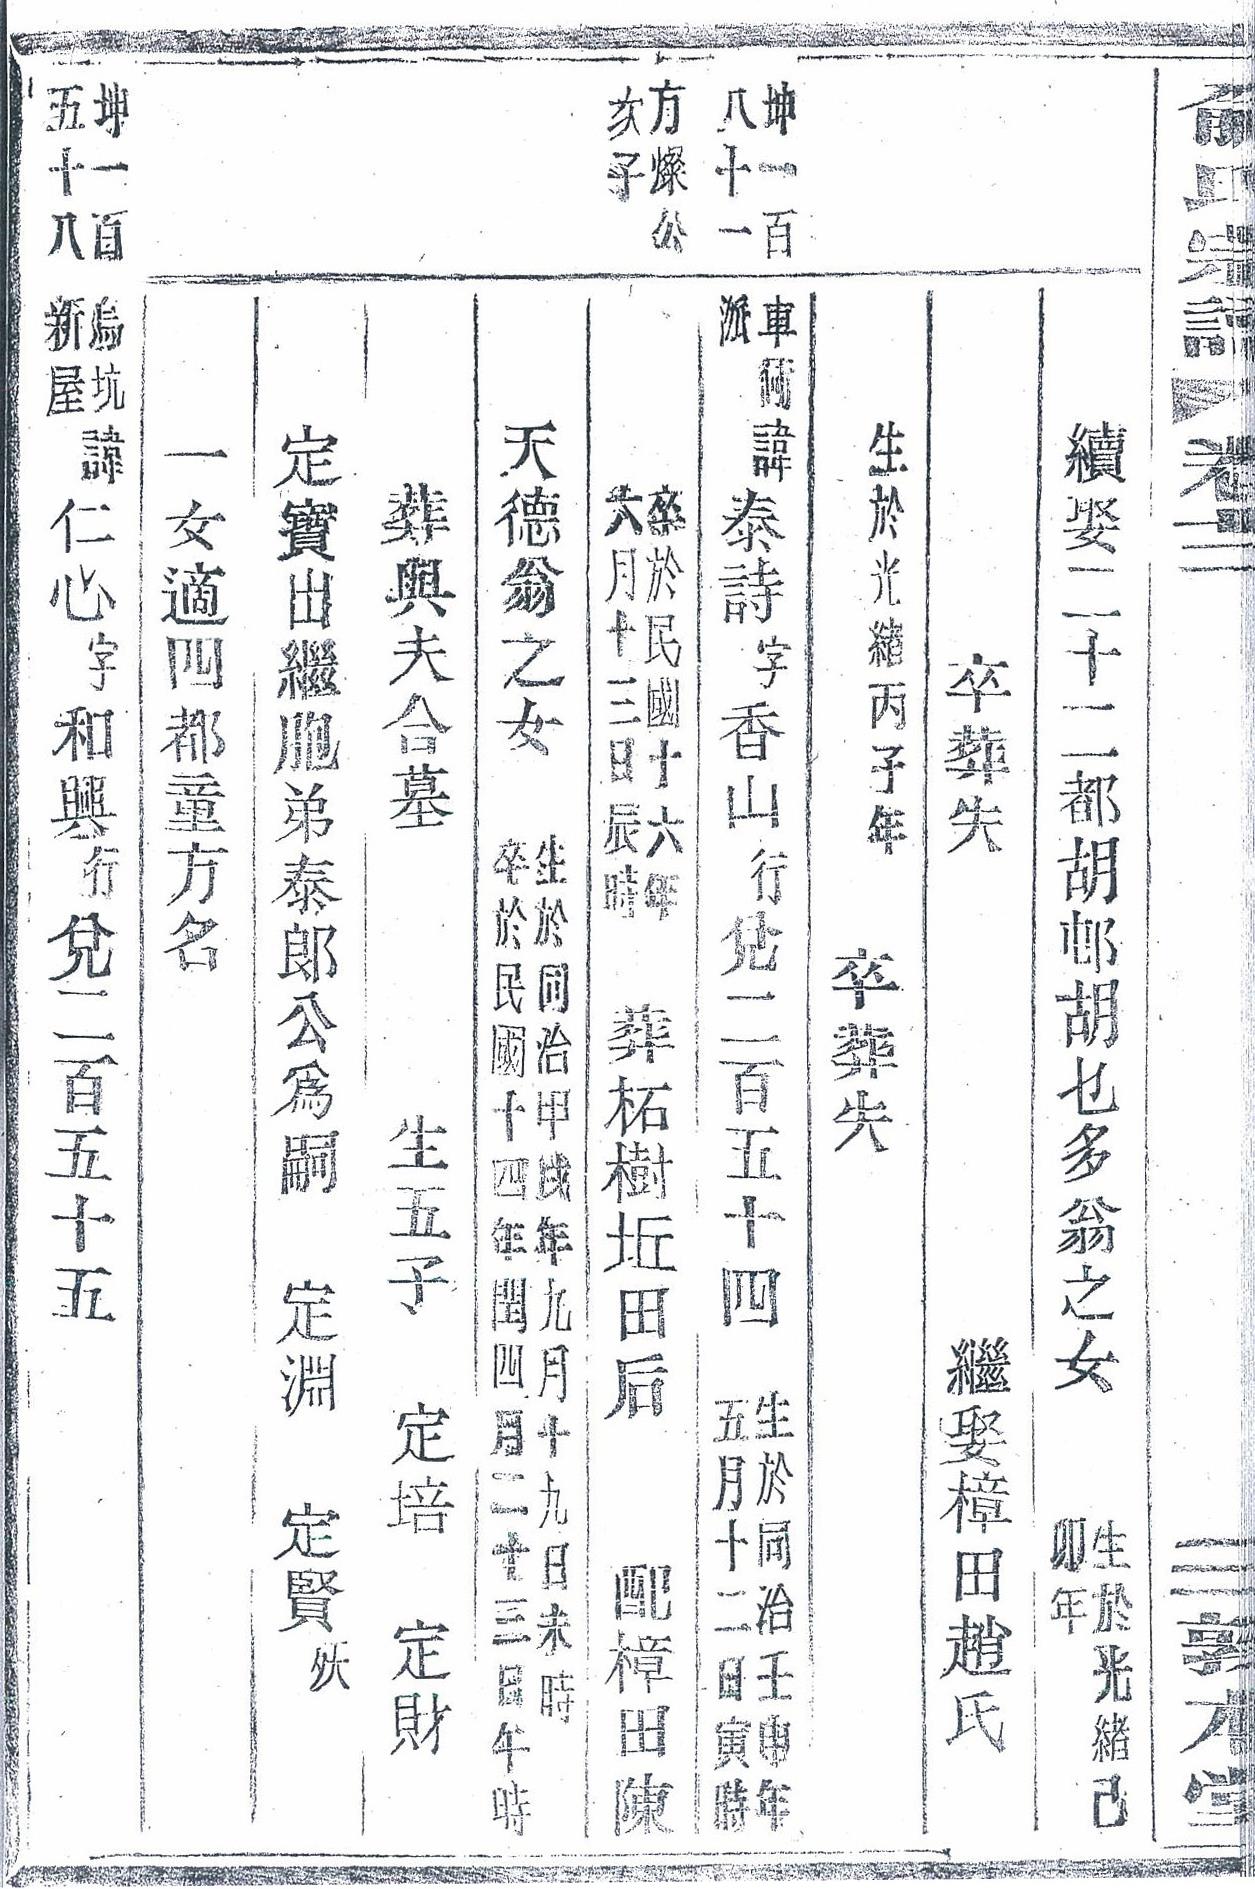 俞氏宗譜 卷二 三 敦本堂
續娶二十二都胡邨胡乜多翁之女 生於光緒己卯年
卒葬失 繼娶樟田趙氏
生於光緒丙子年 卒葬失
坤一百八十一 車衕派 諱泰詩字香山行兌二百五十四 生於同治壬申年五月十二日寅時
方燦公次子 卒於民國十六年六月十三日辰時 葬柘樹坵田后 配樟田陳
天德翁之女 生於同治甲戌年九月十九日未時卒於民國十四年閏四月二十三日午時
葬與夫合墓 生五子 定培 定財
定寶出繼胞弟泰郎公爲嗣 定淵 定賢殀
一女適四都童方名
坤一百五十八 烏坑新屋 諱仁心字和興行兌二百五十五